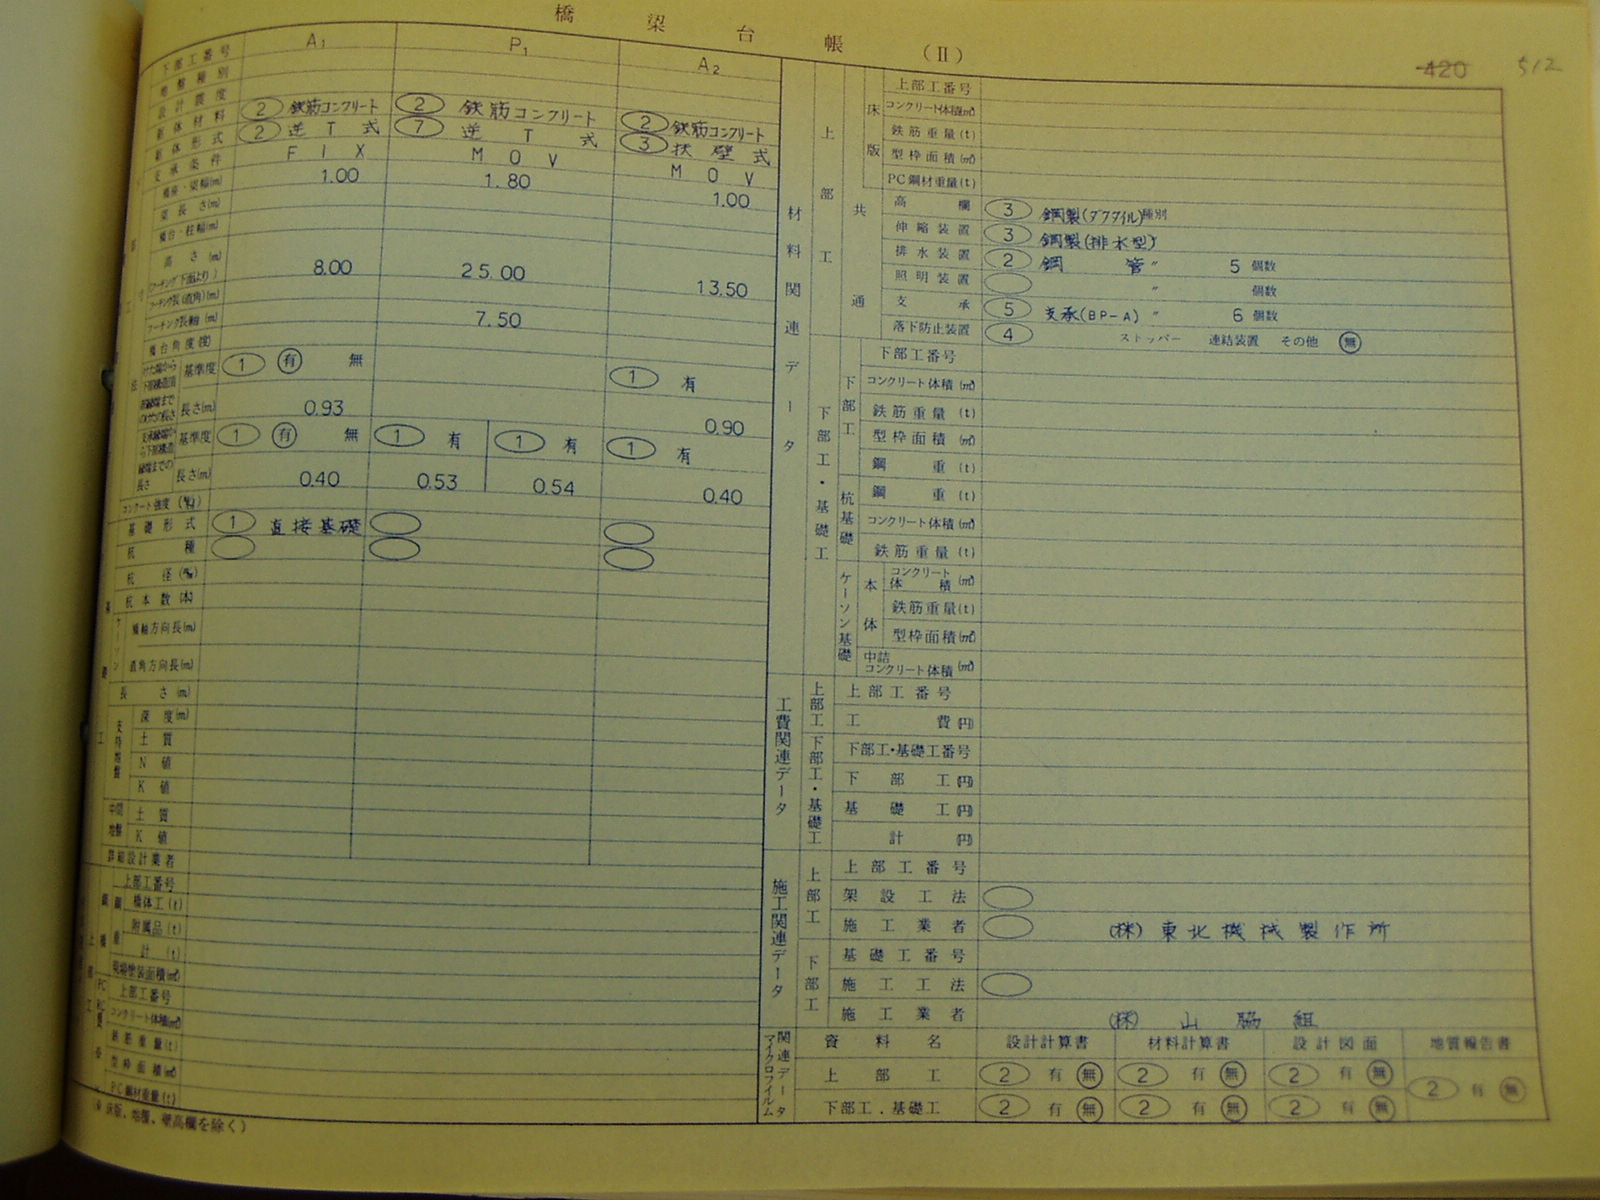 橋梁台帳 (II)
420 512
下部工番号 A1 P1 A2
地盤種別
設計震度
躯体材料 2 鉄筋コンクリート 2 鉄筋コンクリート 2 鉄筋コンクリート
躯体形式 2 逆T式 7 逆T式 3 扶壁式
支承条件 FIX MOV MOV
橋座・梁幅(m) 1.00 1.80 1.00
梁長さ(m)
橋台・柱幅(m)
高さ(m) 8.00 25.00 13.50
フーチング長軸(m) 7.50
橋台角度(度)
基準度 1 有 無 1 有
長さ(m) 0.93 0.90
基準度 1 有 無 1 有 1 有 1 有
長さ(m) 0.40 0.53 0.54 0.40
基礎形式 1 直接基礎
杭種
杭径
杭本数(本)
ケーソン
橋軸方向長(m)
直角方向長(m)
長さ(m)
支持地盤
深度(m)
土質
N値
K値
中間地盤
土質
K値
詳細設計業者
上部工番号
橋体工(t)
附属品(t)
計(t)
現場塗装面積(㎡)
上部工番号
コンクリート体積(㎥)
鉄筋重量(t)
型枠面積(㎡)
PC鋼材重量(t)
(※床版、地覆、壁高欄を除く)
材料関連データ
上部工
床版
上部工番号
コンクリート体積(㎥)
鉄筋重量(t)
型枠面積(㎡)
PC鋼材重量(t)
共通
高欄 3 鋼製(ダクタイル)種別
伸縮装置 3 鋼製(排水型)〃
排水装置 2 鋼管〃 5個数
照明装置 〃 個数
支承 5 支承(BP-A)〃 6個数
落下防止装置 4 ストッパー 連結装置 その他 無
下部工・基礎工
下部工
下部工番号
コンクリート体積(㎥)
鉄筋重量(t)
型枠面積(㎡)
鋼重(t)
杭基礎
鋼重(t)
コンクリート体積(㎥)
鉄筋重量(t)
ケーソン基礎
本体
コンクリート体積(㎥)
鉄筋重量(t)
型枠面積(㎡)
中詰コンクリート体積(㎥)
工費関連データ
上部工
上部工番号
工費(円)
下部工・基礎工
下部工・基礎工番号
下部工(円)
基礎工(円)
計(円)
施工関連データ
上部工
上部工番号
架設工法
施工業者 (株)東北機械製作所
下部工
基礎工番号
施工工法
施工業者 (株)山脇組
マイクロフイルム関連データ
資料名 設計計算書 材料計算書 設計図面 地質報告書
上部工 2 有 無 2 有 無 2 有 無 2 有 無
下部工.基礎工 2 有 無 2 有 無 2 有 無